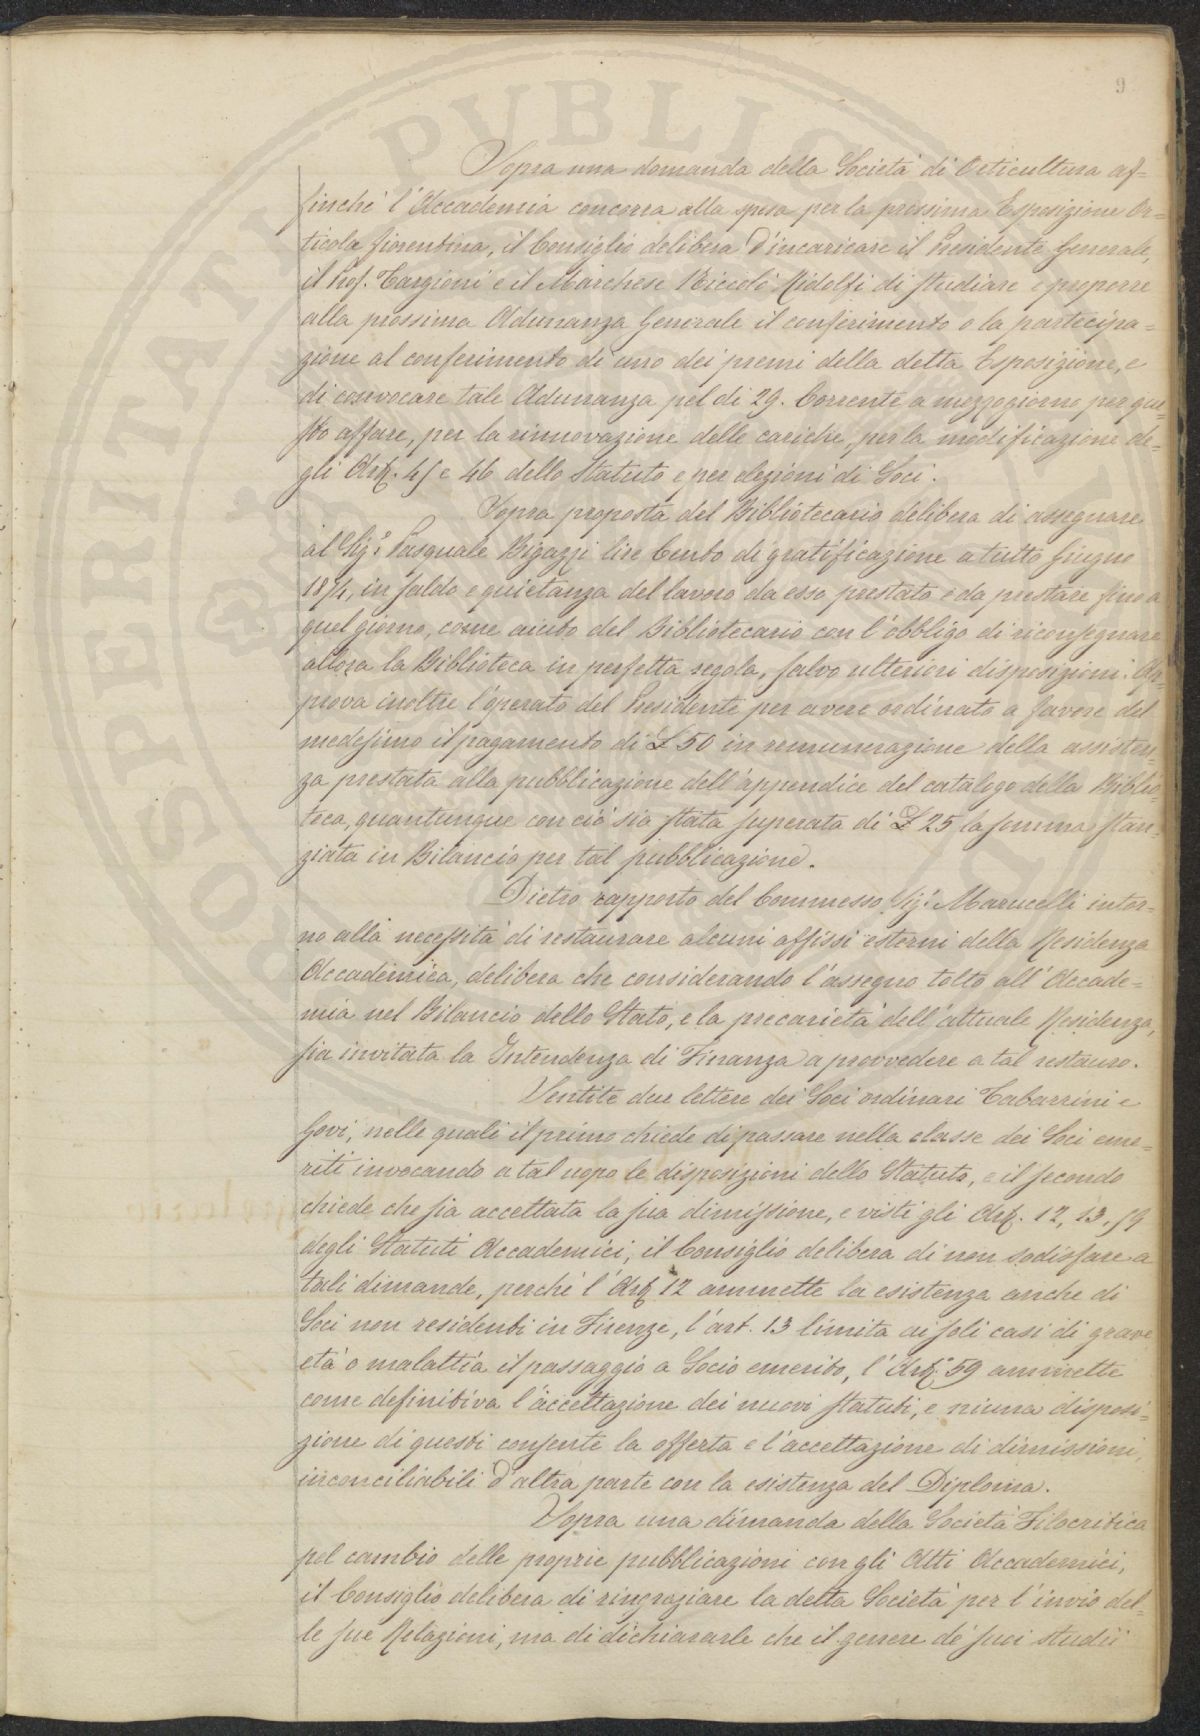 9
Sopra una domanda della Società di Orticultura af-
finchè l'Accademia concorra alla spesa per la prossima Esposizione Or-
ticola fiorentina, il Consiglio delibera d'incaricare il Presidente Generale,
il Prof. Targioni e il Marchese Niccolò Ridolfi di studiare e proporre
alla prossima Adunanza Generale il conferimento o la partecipa-
zione al conferimento di uno dei premi della detta Esposizione, e
di convocare tale Adunanza pel di 29. Corrente a mezzogiorno per que-
sto affare, per la rinnovazione delle cariche, per la modificazione de-
gli Art. 45 e 46 dello Statuto e per elezioni di Soci.
Sopra proposta del Bibliotecario delibera di assegnare
al Sig.r Pasquale Bigazzi lire Cento di gratificazione a tutto Giugno
1871, in saldo e quietanza del lavoro da esso prestato e da prestare fino a
quel giorno, come aiuto del Bibliotecario con l'obbligo di riconsegnare
allora la Biblioteca in perfetta regola, salvo ulteriori disposizioni. Ap-
prova inoltre l'operato del Presidente per avere ordinato a favore del
medesimo il pagamento di £ 50 in remunerazione della assisten-
za prestata alla pubblicazione dell'appendice del catalogo della Biblio-
teca, quantunque con ciò sia stata superata di £ 25 la somma stan-
ziata in Bilancio per tal pubblicazione.
Dietro rapporto del Commesso Sig.r Marucelli intor-
no alla necessità di restaurare alcuni affissi esterni della Residenza
Accademica, delibera che considerando l'assegno tolto all'Accade-
mia nel Bilancio dello Stato, e la precarietà dell'attuale Residenza,
sia invitata la Intendenza di Finanza a provvedere a tal restauro.
Sentite due lettere dei Soci ordinari Tabarrini e
Govi, nelle quali il primo chiede di passare nella classe dei Soci eme-
riti invocando a tal uopo le disposizioni dello Statuto, e il secondo
chiede che sia accettata la sua dimissione, e visti gli Art. 12, 13, 59
degli Statuti Accademici, il Consiglio delibera di non sodisfare a
tali dimande, perchè l'Art. 12 ammette la esistenza anche di
Soci non residenti in Firenze, l'art. 13 limita ai soli casi di grave
età o malattia il passaggio a Socio emerito, l'Art. 59 ammette
come definitiva l'accettazione dei nuovi statuti, e niuna disposi-
zione di questi consente la offerta e l'accettazione di dimissioni,
inconciliabili d'altra parte con la esistenza del Diploma.
Sopra una dimanda della Società Filocritica
pel cambio delle proprie pubblicazioni con gli Atti Accademici,
il Consiglio delibera di ringraziare la detta Società per l'invio del-
le sue Relazioni, ma di dichiararle che il genere de' suoi studii